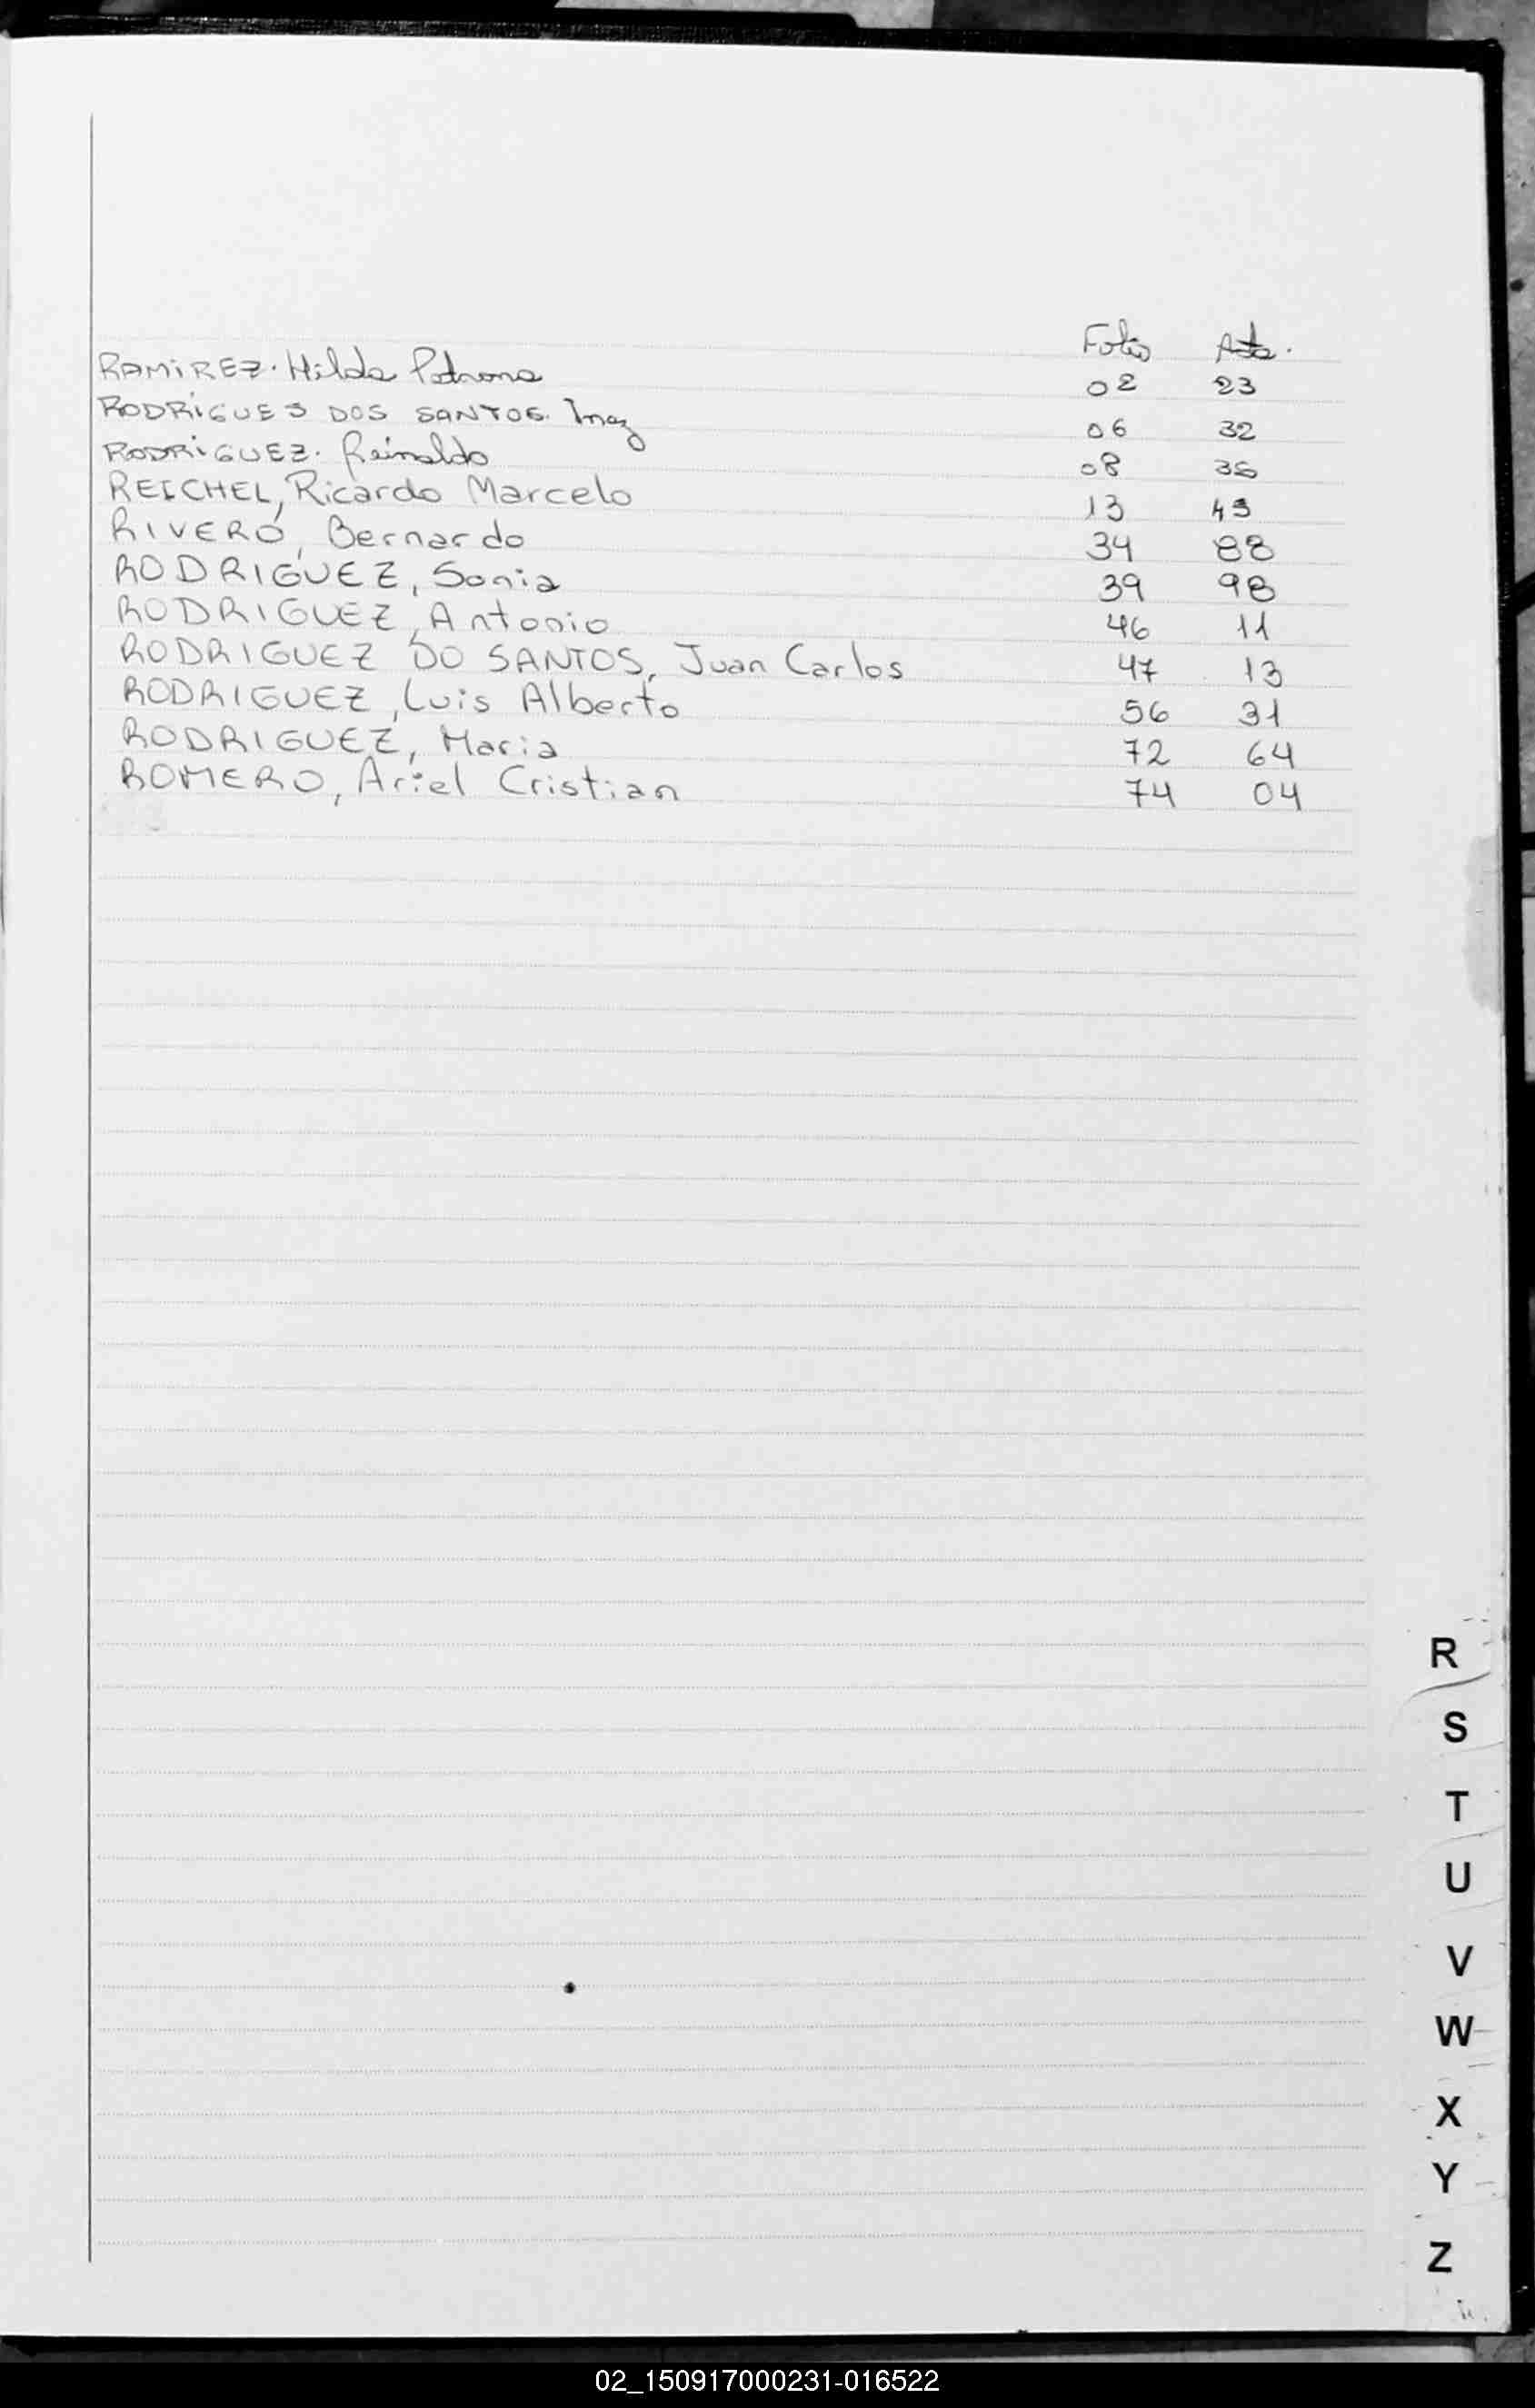 Folio Acta.
RAMIREZ. Hilda Petrona 02 23
RODRIGUES DOS SANTOS. Inez 06 32
RODRIGUEZ. Reinaldo 08 36
REICHEL, Ricardo Marcelo 13 45
RIVERO, Bernardo 34 88
RODRIGUEZ, Sonia 39 98
RODRIGUEZ, Antonio 46 11
RODRIGUEZ DO SANTOS, Juan Carlos 47 13
RODRIGUEZ, Luis Alberto 56 31
RODRIGUEZ, Maria 72 64
ROMERO, Ariel Cristian 74 04
R
S
T
U
V
W
X
Y
Z
02_150917000231-016522